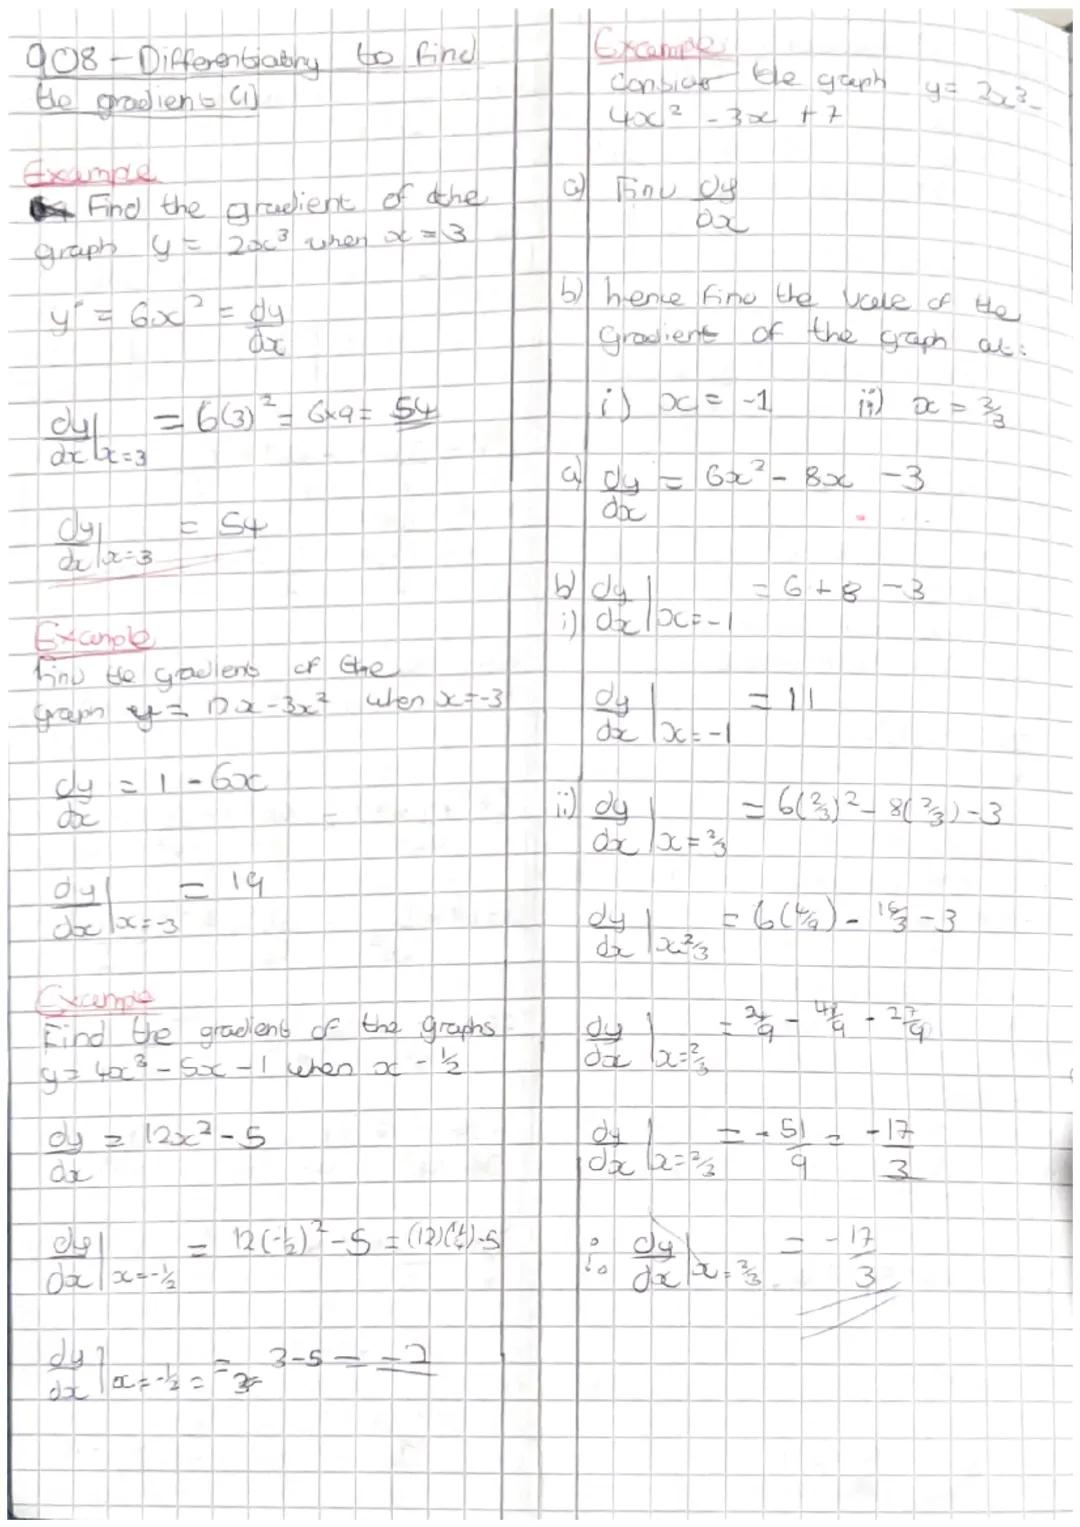 908 - Differentiating to find
the gradient (1)
Example
Find the gradient of the
graph y = 2x³ when x = 3
y' = 6x² = dy/dx
dy/dx|x=3 = 6(3)² = 6x9 = 54
dy/dx|x=3 = 54
Example
find the gradient of the
graph y = x - 3x² when x = -3
dy/dx = 1 - 6x
dy/dx|x=-3 = 19
Example
Find the gradient of the graphs
y = 4x³ - 5x - 1 when x - ½
dy/dx = 12x² - 5
dy/dx|x=-½ = 12(-½)² - 5 = (12)(¼) - 5
dy/dx|x=-½ = = 3 - 5 = -2
Example
Consider the graph y = 2x³ -
4x² - 3x + 7
a) Find dy/dx
b) hence find the value of the
gradient of the graph at:
i) x = -1 ii) x = 2/3
a) dy/dx = 6x² - 8x - 3
b) i) dy/dx|x=-1 = 6 + 8 - 3
dy/dx|x=-1 = 11
ii) dy/dx|x=2/3 = 6(2/3)² - 8(2/3) - 3
dy/dx|x 2/3 = 6(4/9) - 16/3 - 3
dy/dx|x=2/3 = 24/9 - 48/9 - 27/9
dy/dx|x=2/3 = -51/9 = -17/3
∴ dy/dx|x=2/3 = -17/3